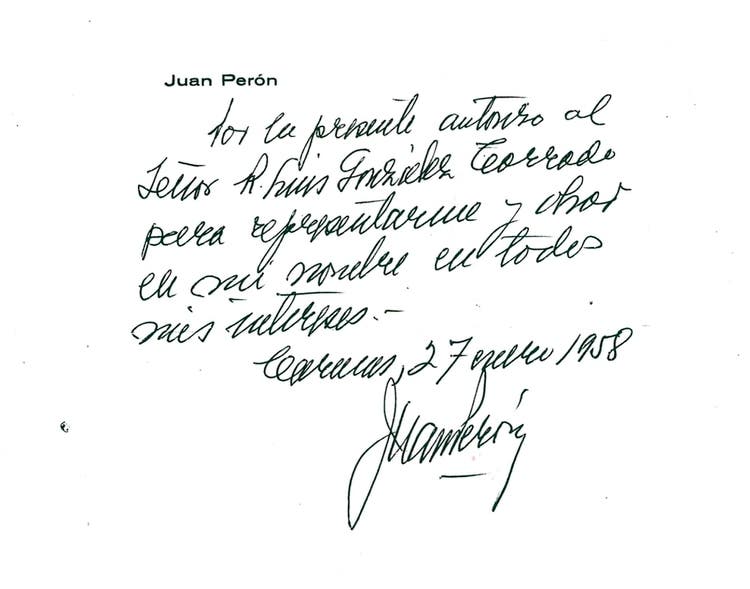 Juan Perón
Por la presente autorizo al
Señor R. Luis González Torrado
para representarme y obrar
en mi nombre en todos
mis intereses.-
Caracas, 27 enero 1958
Juan Perón